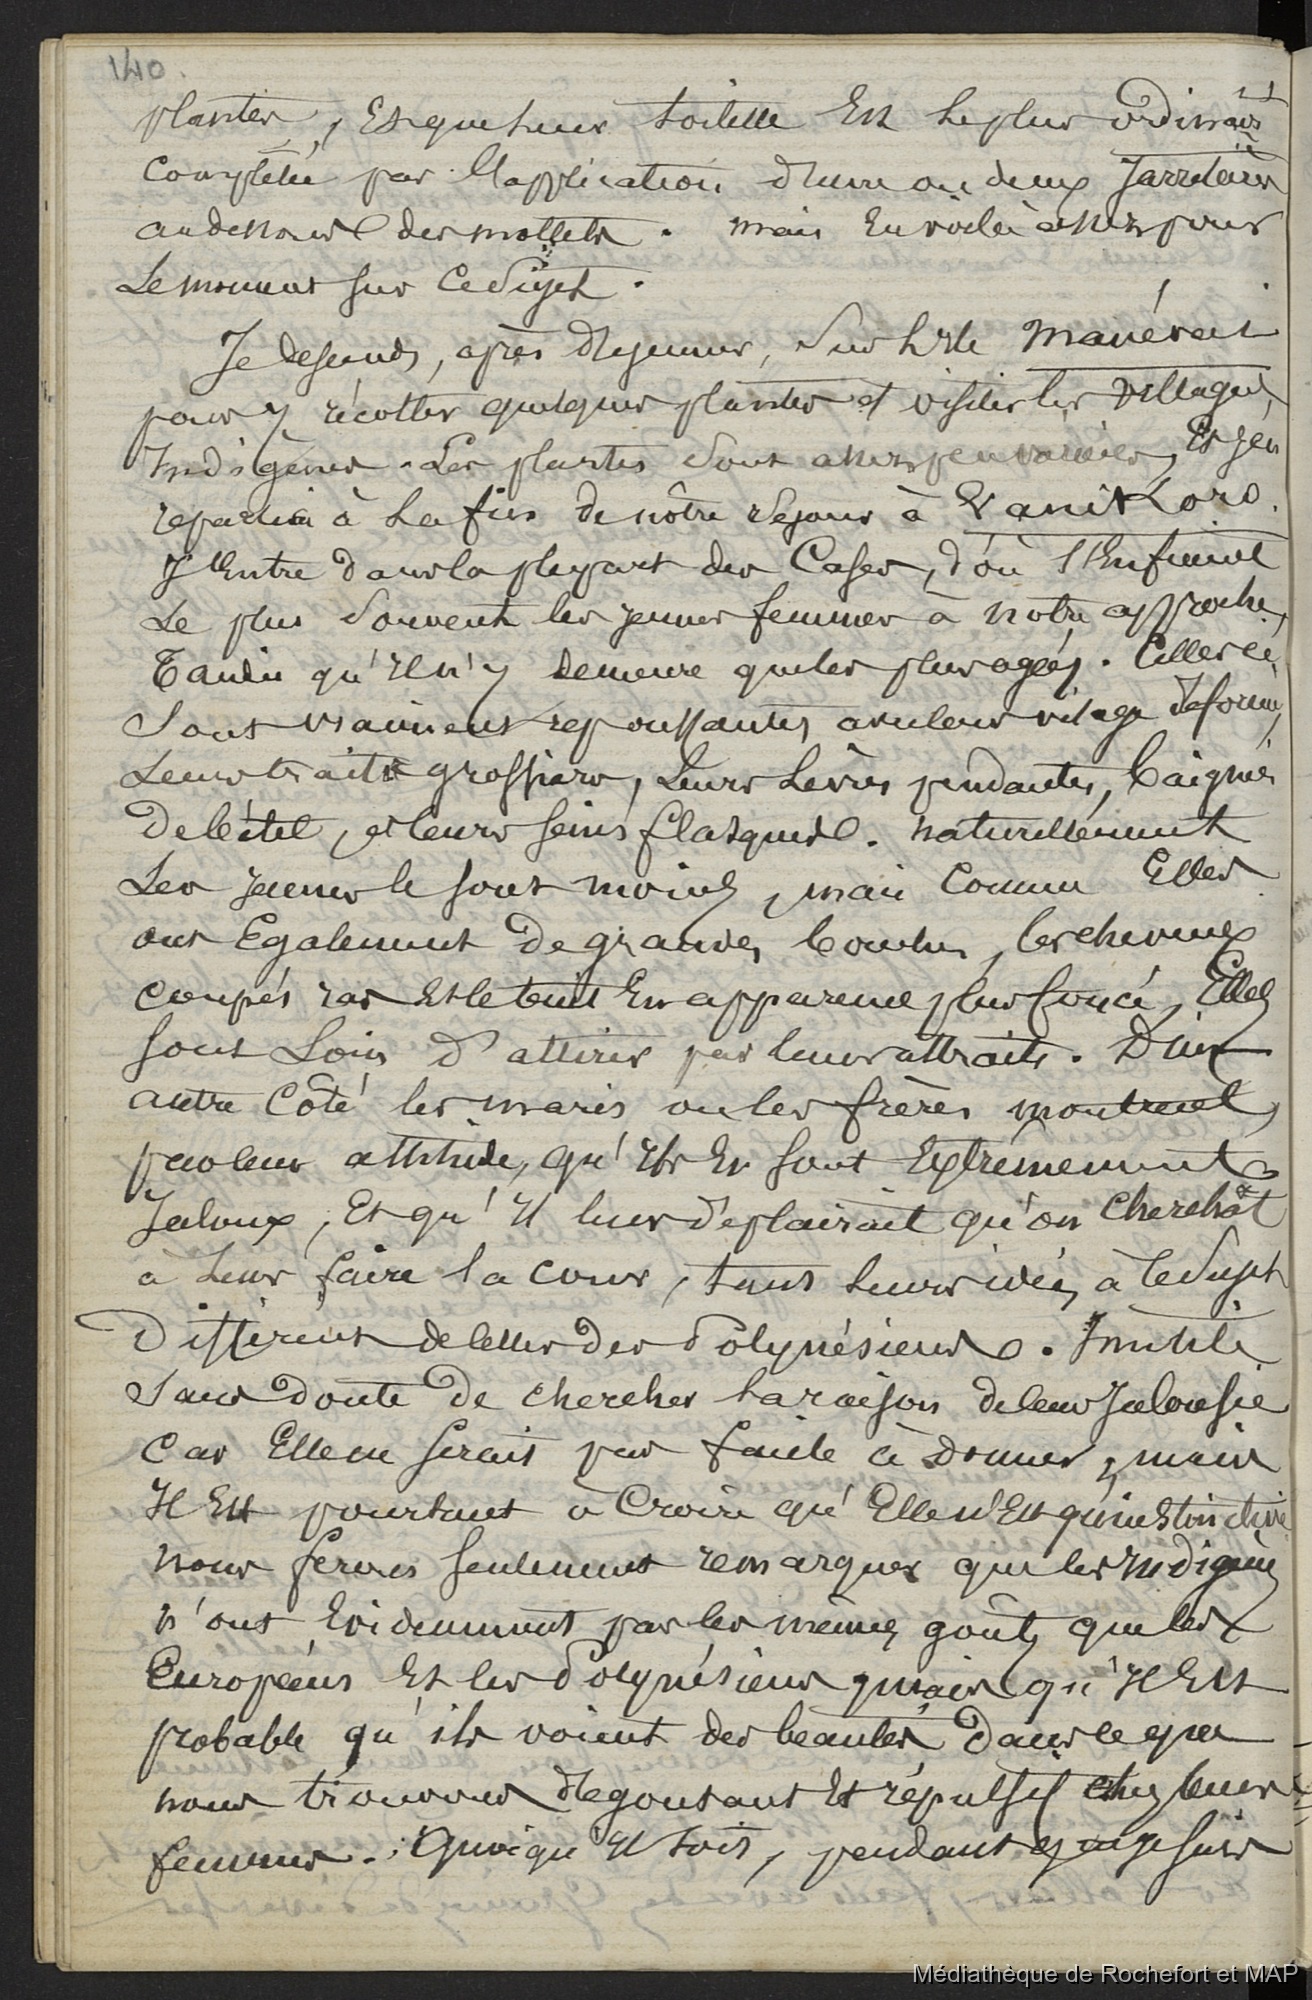 140.
plantes, Et que leur toilette Est le plus ordinair
complétée par l'application d'une ou deux Jarretières
au dessous des mollets. mais En voilà assez pour
Le moment sur ce sujet.
Je descends, après déjeuner, sur l'ile Manévai
pour y récolter quelques plantes et visiter les villages
Indigènes. Les plantes sont assez peu variées, Et j'en
reparlerai à la fin de nôtre séjour à Vanikoro.
J'Entre dans la plupart des Cases, d'où s'Enfuient
Le plus souvent les jeunes femmes à notre approche,
Tandis qu'Il n'y demeure que les plus ageés. Celles ci,
sont vraiment repoussantes avec leur visage déformé,
Leurs traits grossiers, Leurs Lèvres pendantes, baignées
De bétel, et leurs seins flasques. naturellement
Les jeunes le sont moins, mais comme Elles
ont Egalement de grandes bouches, les cheveux
coupés ras Et le teint En apparence plus foncé, Elles
sont Loin d'attirer par leurs attraits. D'un
autre côté les maris ou les frères montrent,
par leur attitude, qu'Ils En sont Extrêmement
Jaloux, Et qu'Il leur déplairait qu'on cherchât
à Leur faire la cour, tant leurs idées à ce sujet
Diffèrent de celles des Polynésiens. Inutile
sans doute de chercher la raison de leur Jalousie
car Elle ne serait pas facile à donner, mais
Il Est pourtant à Croire qu'Elle n'Est qu'instinctive.
nous ferons seulement remarquer que les Indigènes
n'ont Evidemment pas les mêmes goûts que les
Européens Et les Polynésiens, mais qu'Il Est
probable qu'ils voient des beautés dans ce que
nous trouvons dégoutant Et répulsif chez leurs
femmes. Quoiqu'Il soit, pendant que je suis
Médiathèque de Rochefort et MAP